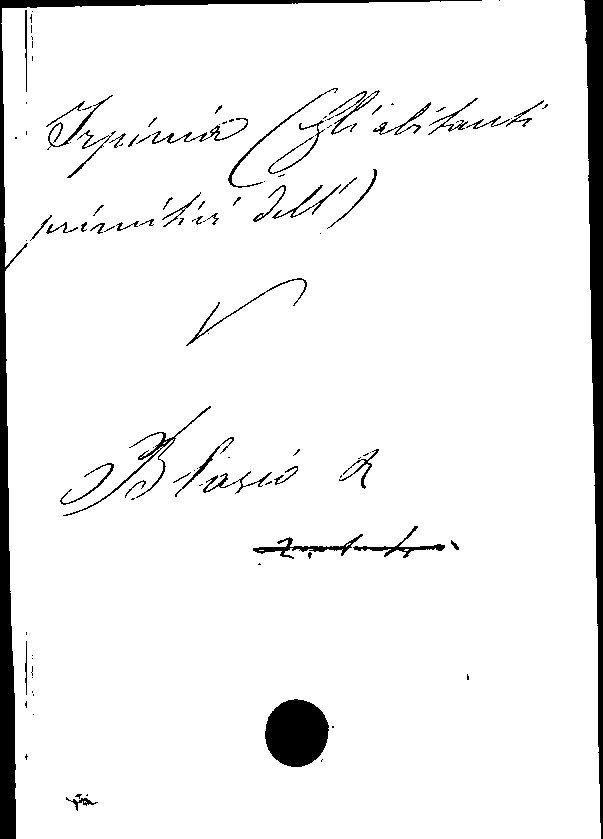 Irpinia (Gli abitanti
primitivi dell')
V
Blasio A